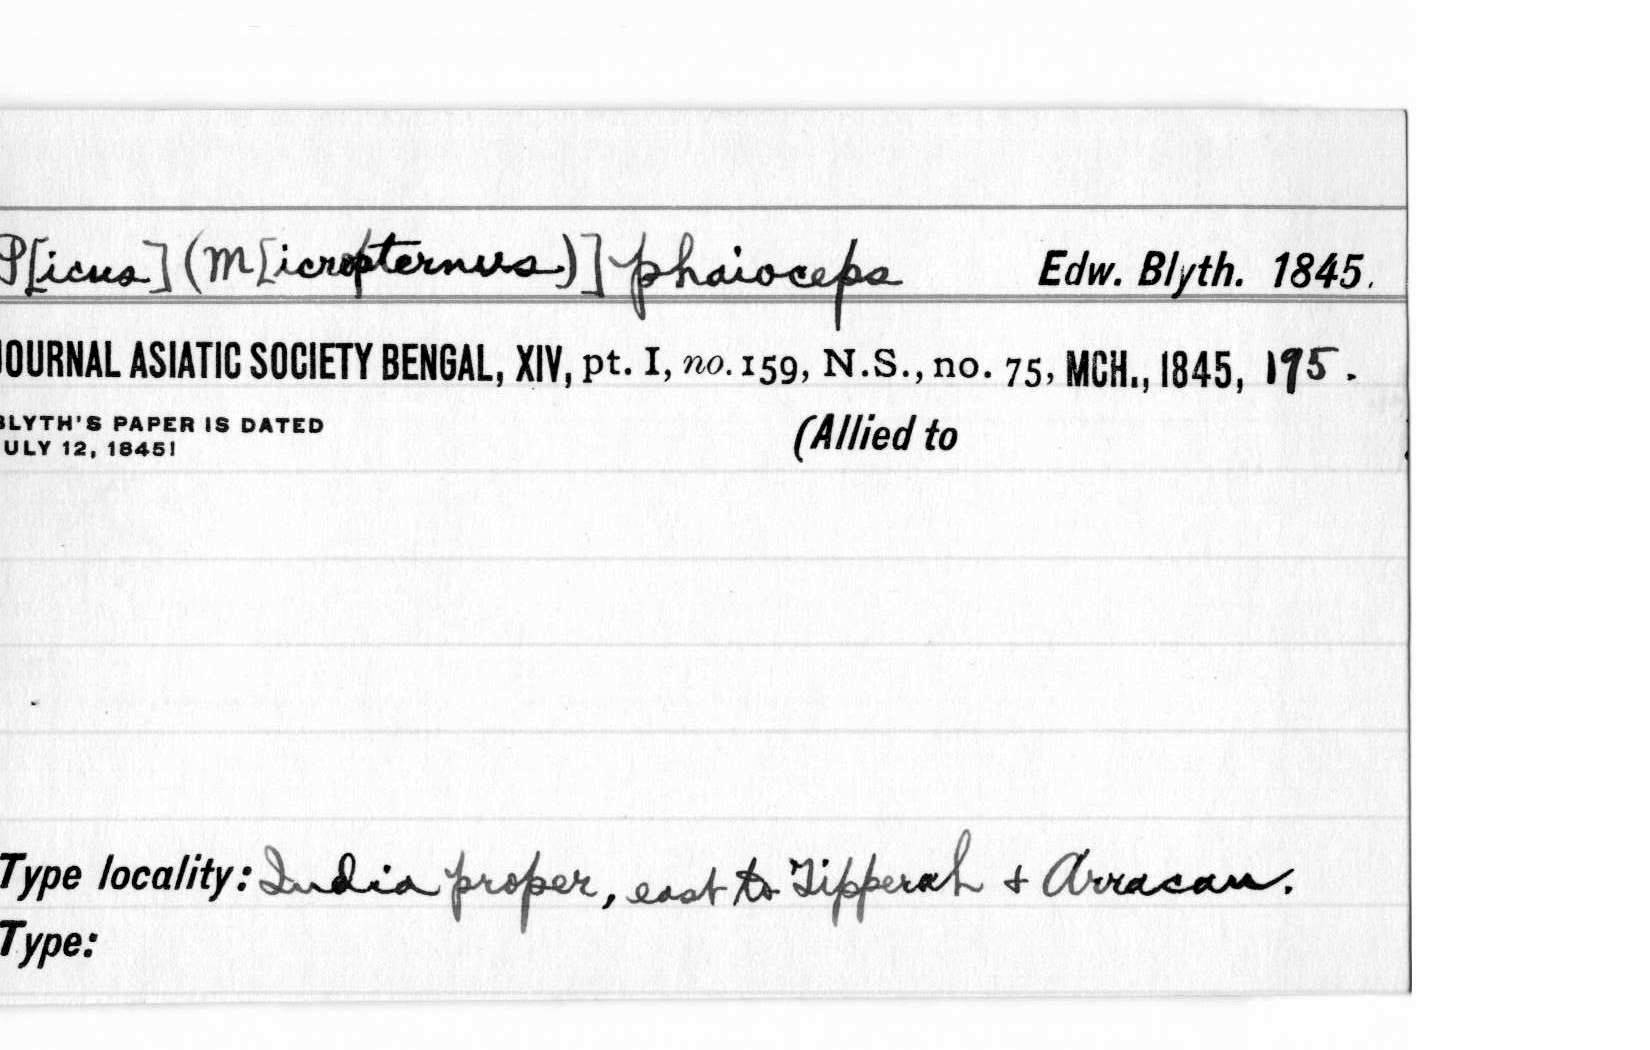 P[icus] (M[icropternus)] phaioceps Edw. Blyth. 1845.
JOURNAL ASIATIC SOCIETY BENGAL, XIV, pt. I, no. 159, N.S., no. 75, MCH., 1845, 195.
BLYTH'S PAPER IS DATED (Allied to
ULY 12, 1845!
Type locality: India proper, east to Tipperah + Arracan.
Type: